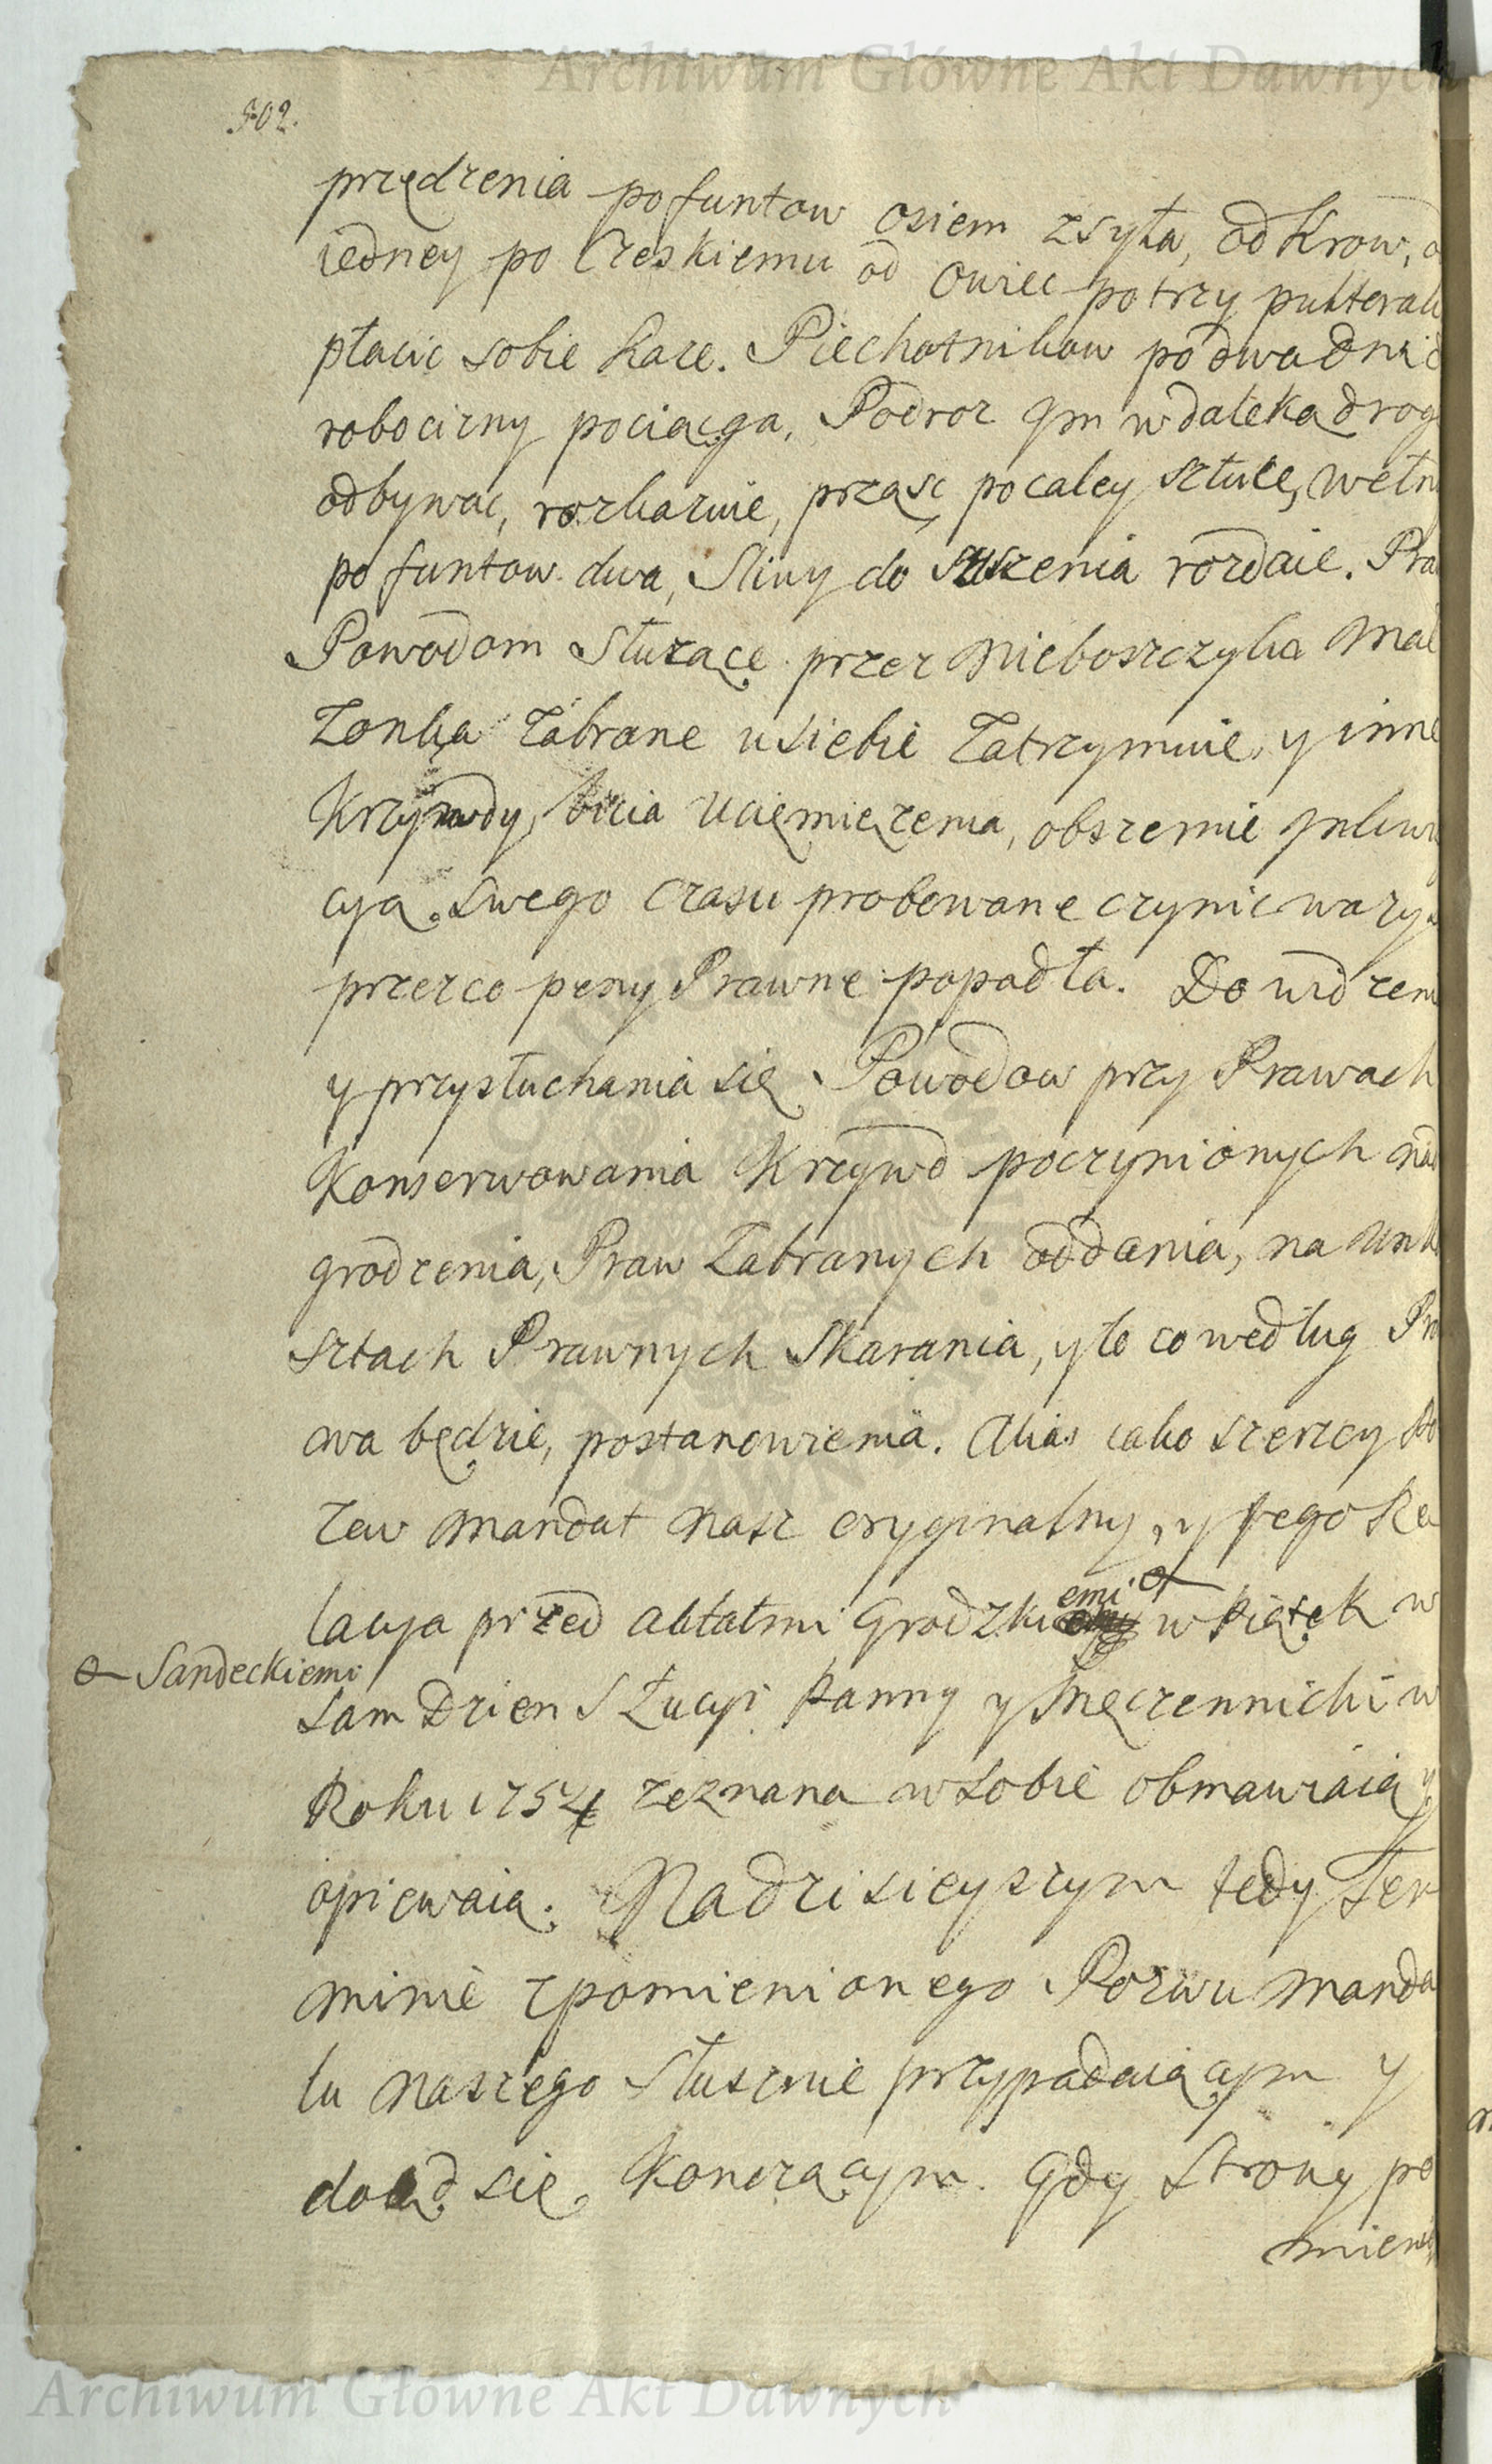 Archiwum Główne Akt Dawnych
302.
przędzenia po funtow osiem zsyła, od Krow, o
iedney po Czeskiemu od owiec po trzy pułtorak
płacic sobie każe. Piechotnikow po dwa dni d
robocizny pociąga, Podroz Jm w daleką drog
odbywac, rozkazuie, prząsc po całey sztuce, wełn
po funtow dwa, Sliwy do suszenia rozdaie. Pra
Powodom Służące przez Nieboszczyka Mał
żonka zabrane u siebie zatrzymuie, y inne
Krzywdy, bicia uciemięzenia, obszernie
cyą swego czasu probowane czynic wazy
przez co peny Prawne popadła. Do widzeni
y przysłuchania się Powodow przy Prawach
Konserwowania Krzywd poczynionych na
grodzenia, Praw zabranych oddania, na Unk
sztach Prawnych Skarania, y to co według Pra
wa będzie, postanowienia. Alias iako szerzcy Po
zew Mandat nasz oryginalny, y iego Re
lacya przed Aktami Grodzkiemi w Piątek w
Sandeckiemi
sam Dzien S Łucyi Panny y Męczennicki w
Roku 1754 zeznana w sobie obmawiaią y
opiewaią. Na dzisieyszym tedy Ter
minie zpomienionego Pozwu Manda
tu naszego słusznie przypadaiącym y
dotąd się Konczącym. Gdy Strony po
mieni
Archiwum Główne Akt Dawnych